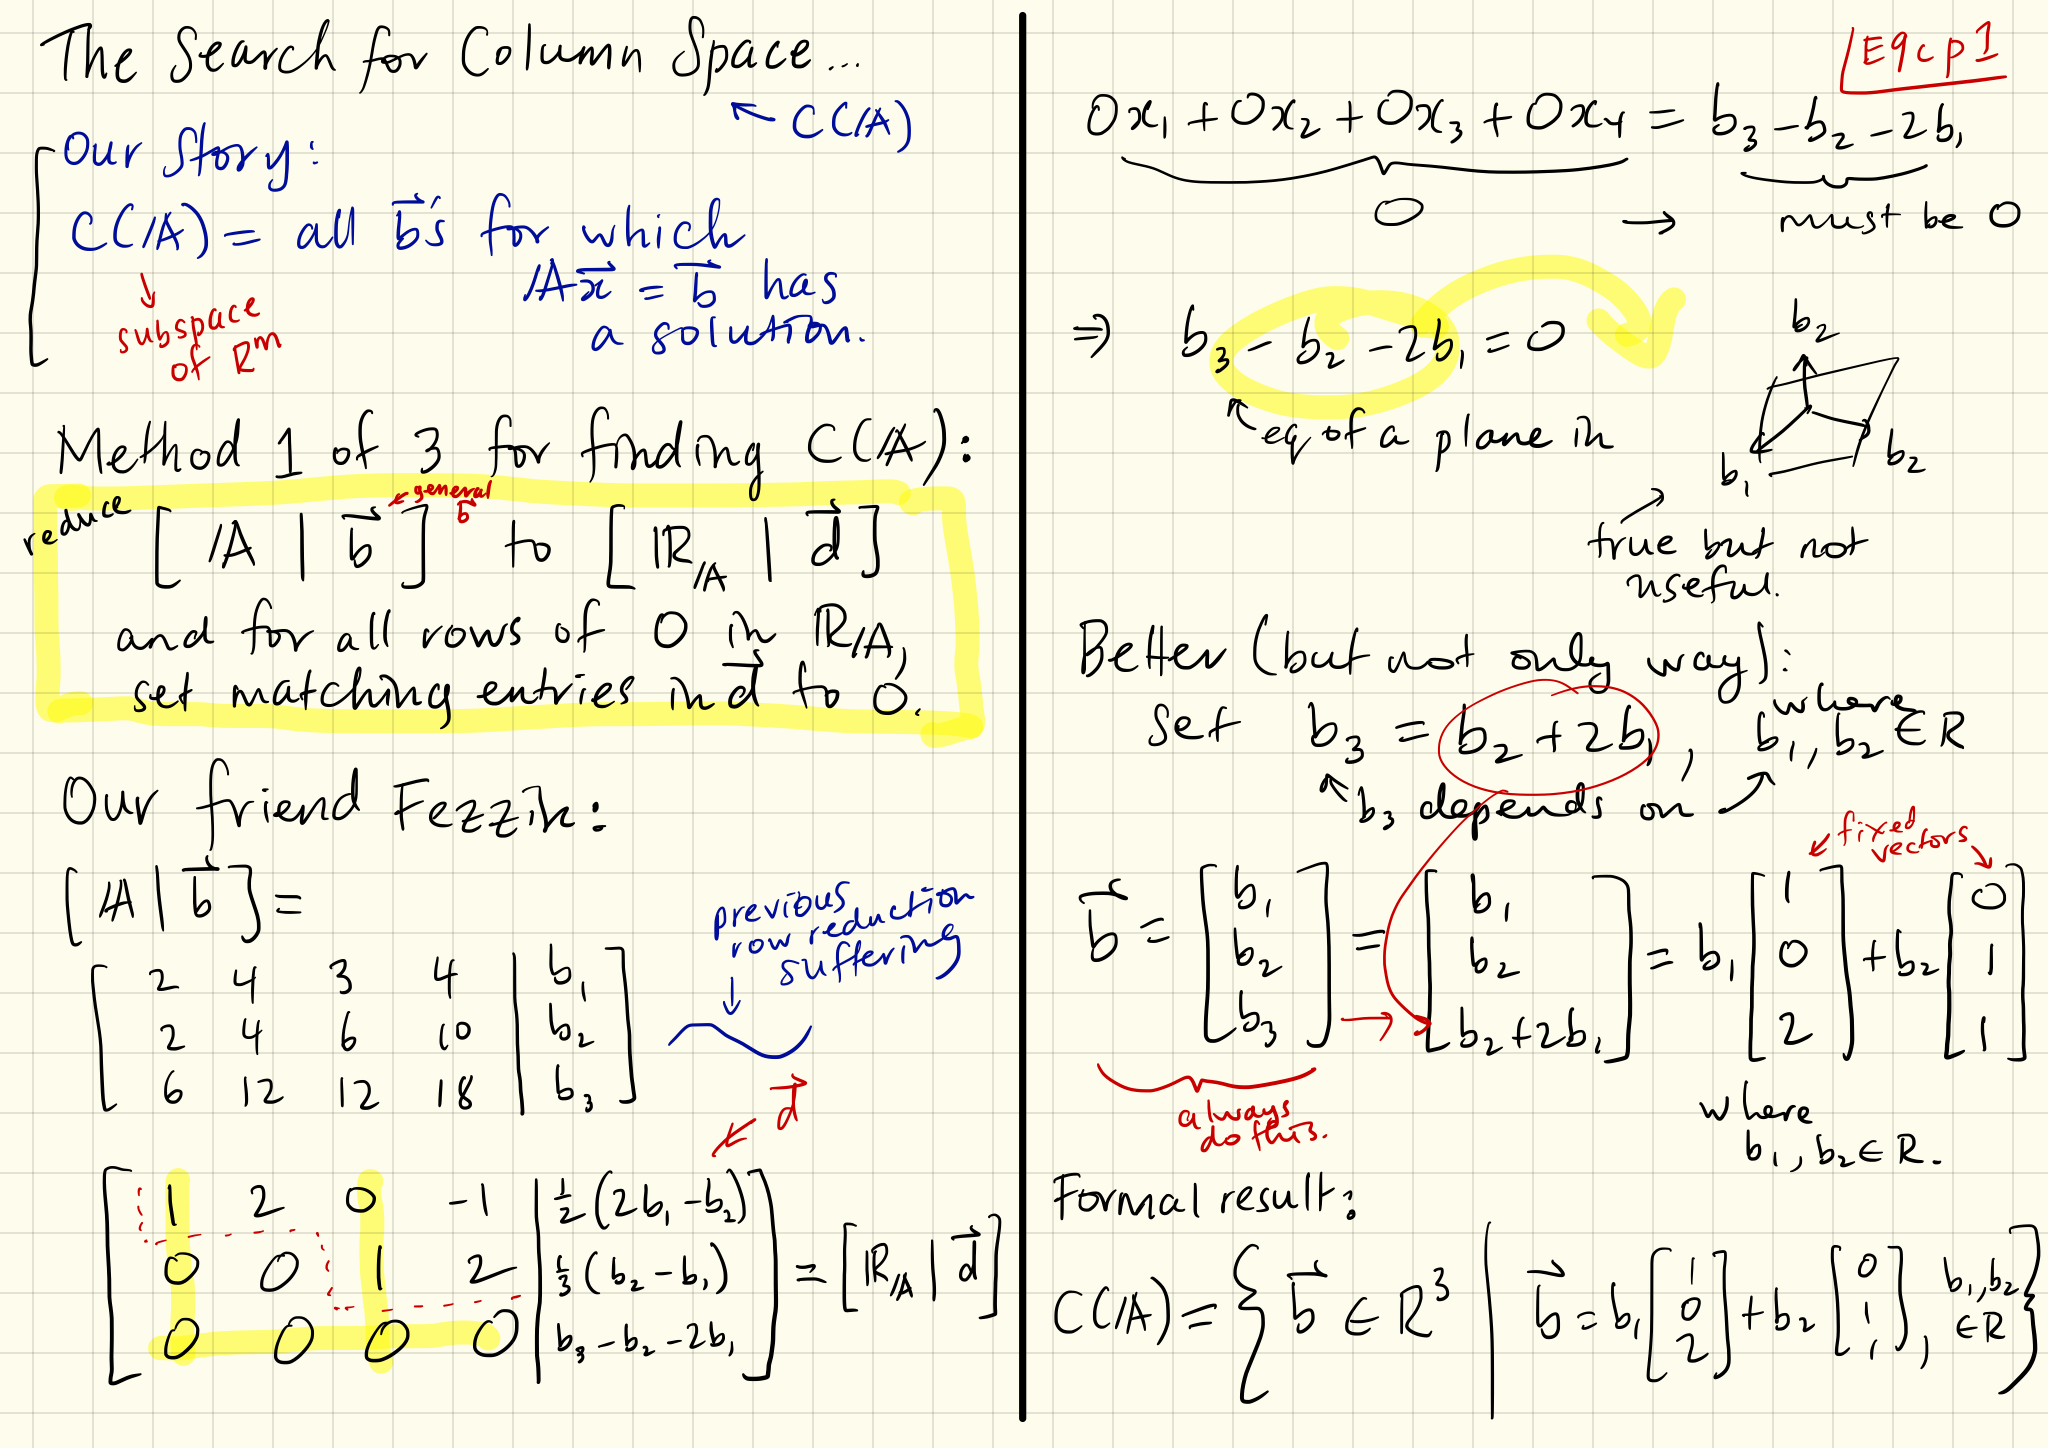 The Search for Column Space...
← C(A)
Our Story:
C(A) = all b⃗'s for which
Ax⃗ = b⃗ has
a solution.
↓
subspace
of Rᵐ
Method 1 of 3 for finding C(A):
reduce [ A | b⃗ ] to [ R_A | d⃗ ]
← general
b⃗
and for all rows of 0 in R_A,
set matching entries in d⃗ to 0.
Our friend Fezzik:
[ A | b⃗ ] =
2 4 3 4 | b₁
2 4 6 10 | b₂
6 12 12 18 | b₃
previous
row reduction
suffering
↓
d⃗
1 2 0 -1 | ½(2b₁ - b₂)
0 0 1 2 | ⅓(b₂ - b₁) = [ R_A | d⃗ ]
0 0 0 0 | b₃ - b₂ - 2b₁
E9cp1
0x₁ + 0x₂ + 0x₃ + 0x₄ = b₃ - b₂ - 2b₁
0 → must be 0
⇒ b₃ - b₂ - 2b₁ = 0
eq of a plane in
b₂
b₁
b₂
true but not
useful.
Better (but not only way):
where
Set b₃ = b₂ + 2b₁, b₁, b₂ ∈ R
b₃ depends on
fixed
vectors
b⃗ = [b₁ b₂ b₃] = [b₁ b₂ b₂+2b₁] = b₁ [1 0 2] + b₂ [0 1 1]
always
do this.
where
b₁, b₂ ∈ R.
Formal result:
C(A) = { b⃗ ∈ R³ | b⃗ = b₁ [1 0 2] + b₂ [0 1 1], b₁, b₂ ∈ R }